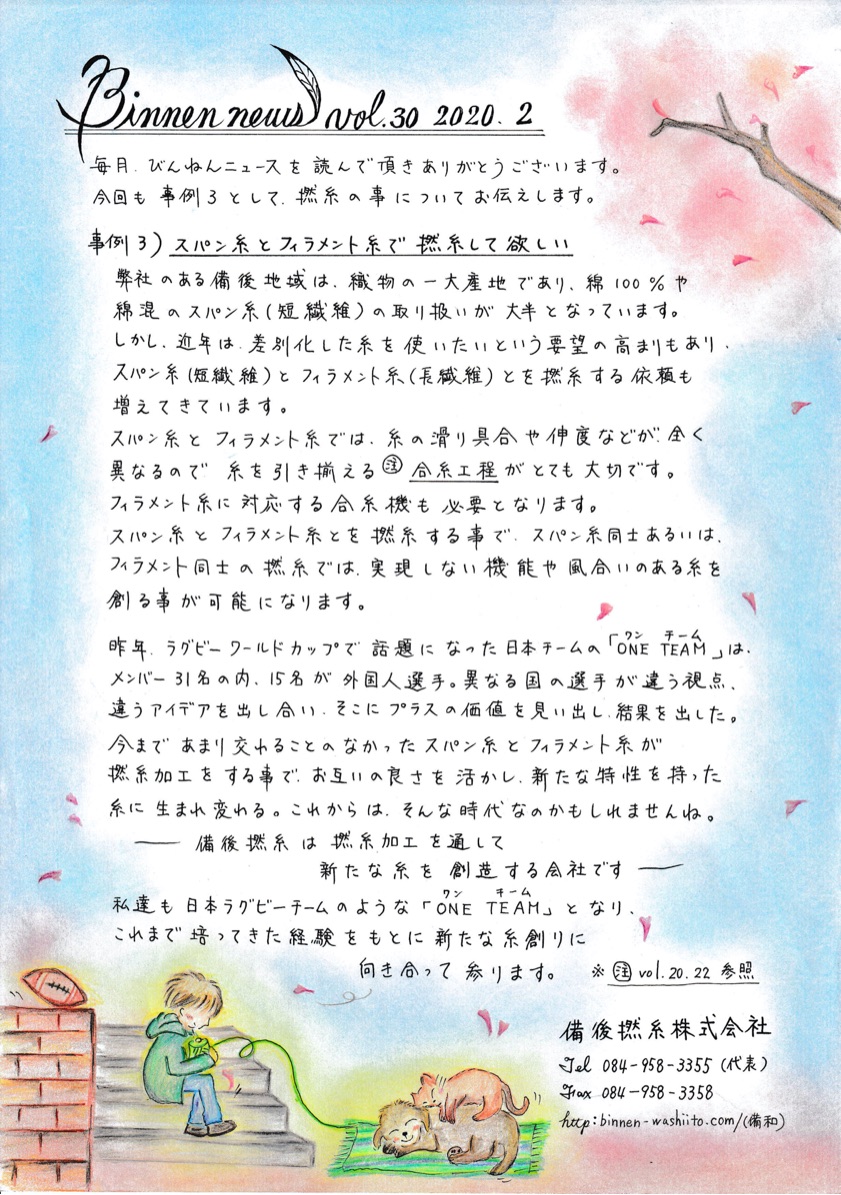 Binnen news vol.30 2020.2
毎月、びんねんニュースを読んで頂きありがとうございます。
今回も事例3として、撚糸の事についてお伝えします。
事例3) スパン糸とフィラメント糸で撚糸して欲しい
弊社のある備後地域は、織物の一大産地であり、綿100%や
綿混のスパン糸(短繊維)の取り扱いが大半となっています。
しかし、近年は、差別化した糸を使いたいという要望の高まりもあり、
スパン糸(短繊維)とフィラメント糸(長繊維)とを撚糸する依頼も
増えてきています。
スパン糸とフィラメント糸では、糸の滑り具合や伸度などが、全く
異なるので糸を引き揃える㊟合糸工程がとても大切です。
フィラメント糸に対応する合糸機も必要となります。
スパン糸とフィラメント糸とを撚糸する事で、スパン糸同士あるいは、
フィラメント同士の撚糸では、実現しない機能や風合いのある糸を
創る事が可能になります。
昨年、ラグビーワールドカップで話題になった日本チームの「ONE TEAM」は、
ワン チーム
メンバー31名の内、15名が外国人選手。異なる国の選手が違う視点、
違うアイデアを出し合い、そこにプラスの価値を見い出し、結果を出した。
今まであまり交れることのなかったスパン糸とフィラメント糸が
撚糸加工をする事で、お互いの良さを活かし、新たな特性を持った
糸に生まれ変わる。これからは、そんな時代なのかもしれませんね。
― 備後撚糸は撚糸加工を通して
新たな糸を創造する会社です ―
私達も日本ラグビーチームのような「ONE TEAM」となり、
ワン チーム
これまで培ってきた経験をもとに新たな糸創りに
向き合って参ります。 ※㊟vol.20.22参照
備後撚糸株式会社
Tel 084-958-3355 (代表)
Fax 084-958-3358
http:binnen-washiito.com/(備和)